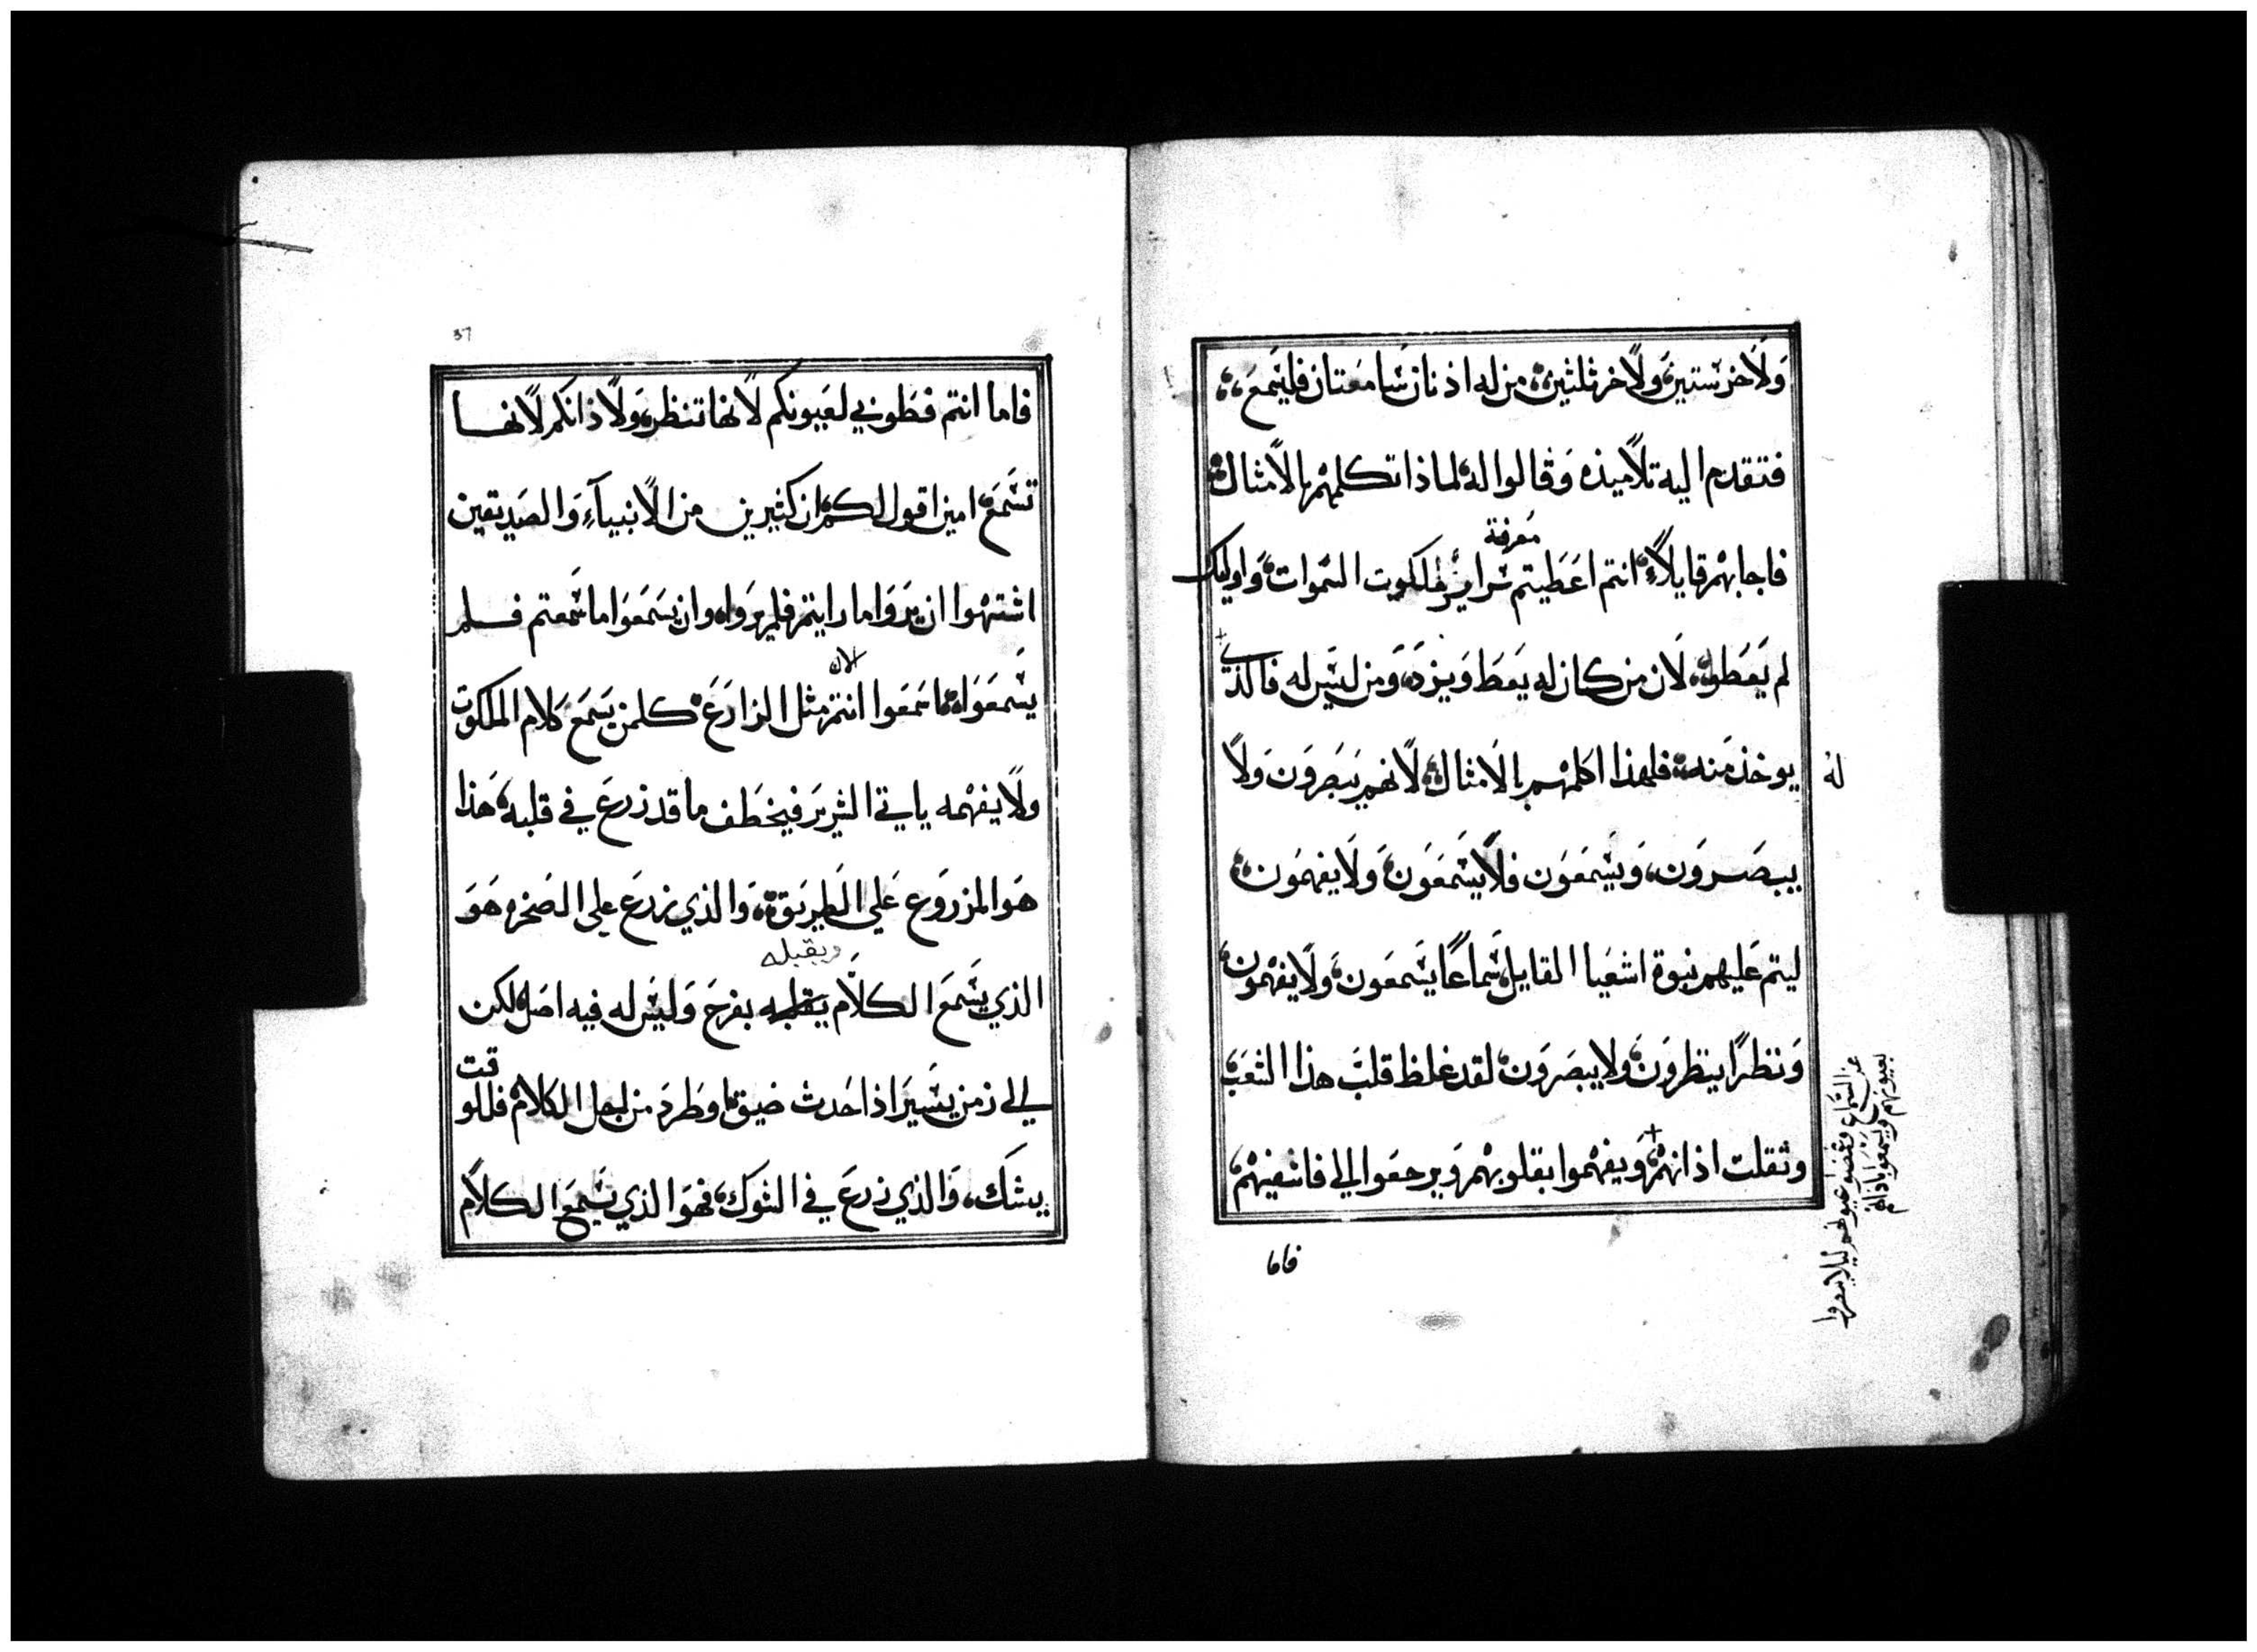 ولاخر ستين ولاخر ثلثين من له اذنان سامعتان فليسمع
فتقدم اليه تلاميذه وقالوا له لماذا تكلمهم بالامثال
معرفة
فاجابهم قايلاً انتم اعطيتم سراير ملكوت السموات واوليك
لم يعطوا لان من كان له يعط ويزد ومن ليس له فالذي
له
يوخذ منه فلهذا اكلمهم بالامثال لانهم يبصرون ولا
يبصرون ويسمعون فلا يسمعون ولا يفهمون
ليتم عليهم نبوة اشعيا القايل سماعاً يسمعون ولا يفهمون
ونظراً ينظرون ولا يبصرون لقد غلظ قلب هذا الشعب
وثقلت اذانهم ويفهموا بقلوبهم ويرجعوا الي فاشفيهم
عن السماع وغمضوا عيونهم ليلا يبصروا
بعيونهم ويسمعوا باذانهم
فاما
37
فاما انتم فطوبي لعيونكم لانها تنظر ولاذانكم لانها
تسمع امين اقول لكم ان كثيرين من الانبياء والصديقين
اشتهوا ان يروا ما رايتم فلم يروا وان يسمعوا ما سمعتم فلم
الان
يسمعوا فاسمعوا انتم مثل الزارع كلمن يسمع كلام الملكوت
ولا يفهمه ياتي الشرير فيخطف ما قد زرع في قلبه هذا
هو المزروع علي الطريق والذي زرع علي الصخره هو
ويقبله
الذي يسمع الكلام يقلبه بفرح وليس له فيه اصل لكن
الي زمن يسير اذا حدث ضيق او طرد من اجل الكلام فللوقت
يشك، والذي زرع في الشوك فهو الذي يسمع الكلام